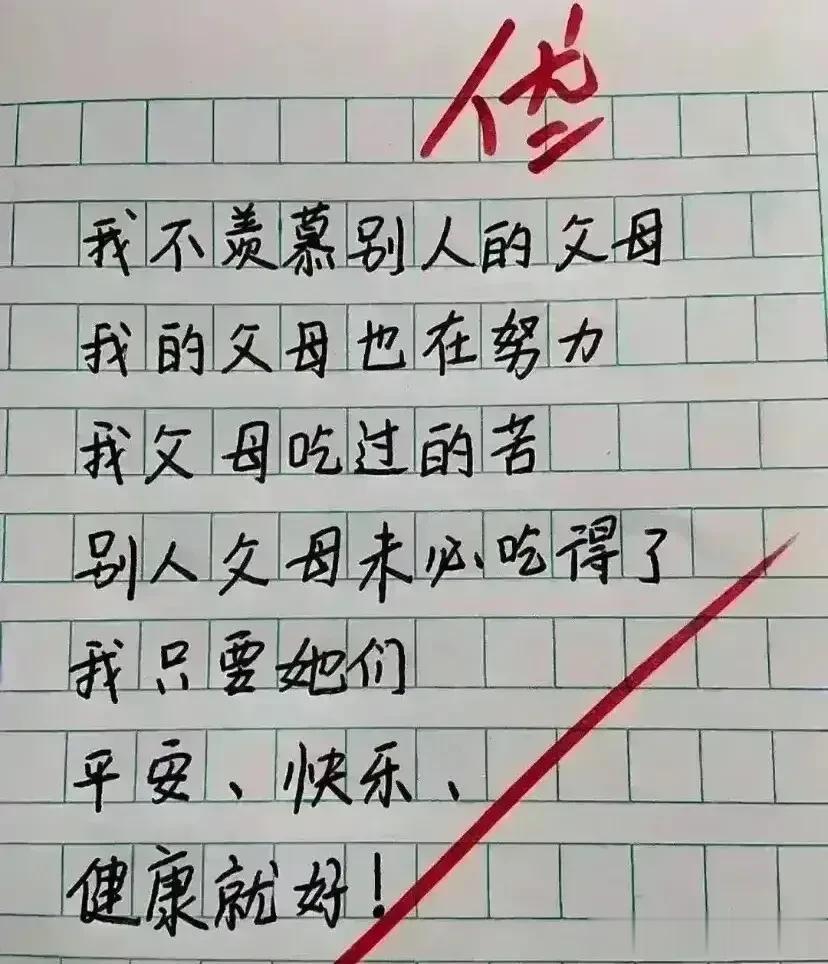 优
我不羡慕别人的父母
我的父母也在努力
我父母吃过的苦
别人父母未必吃得了
我只要她们
平安、快乐、
健康就好！